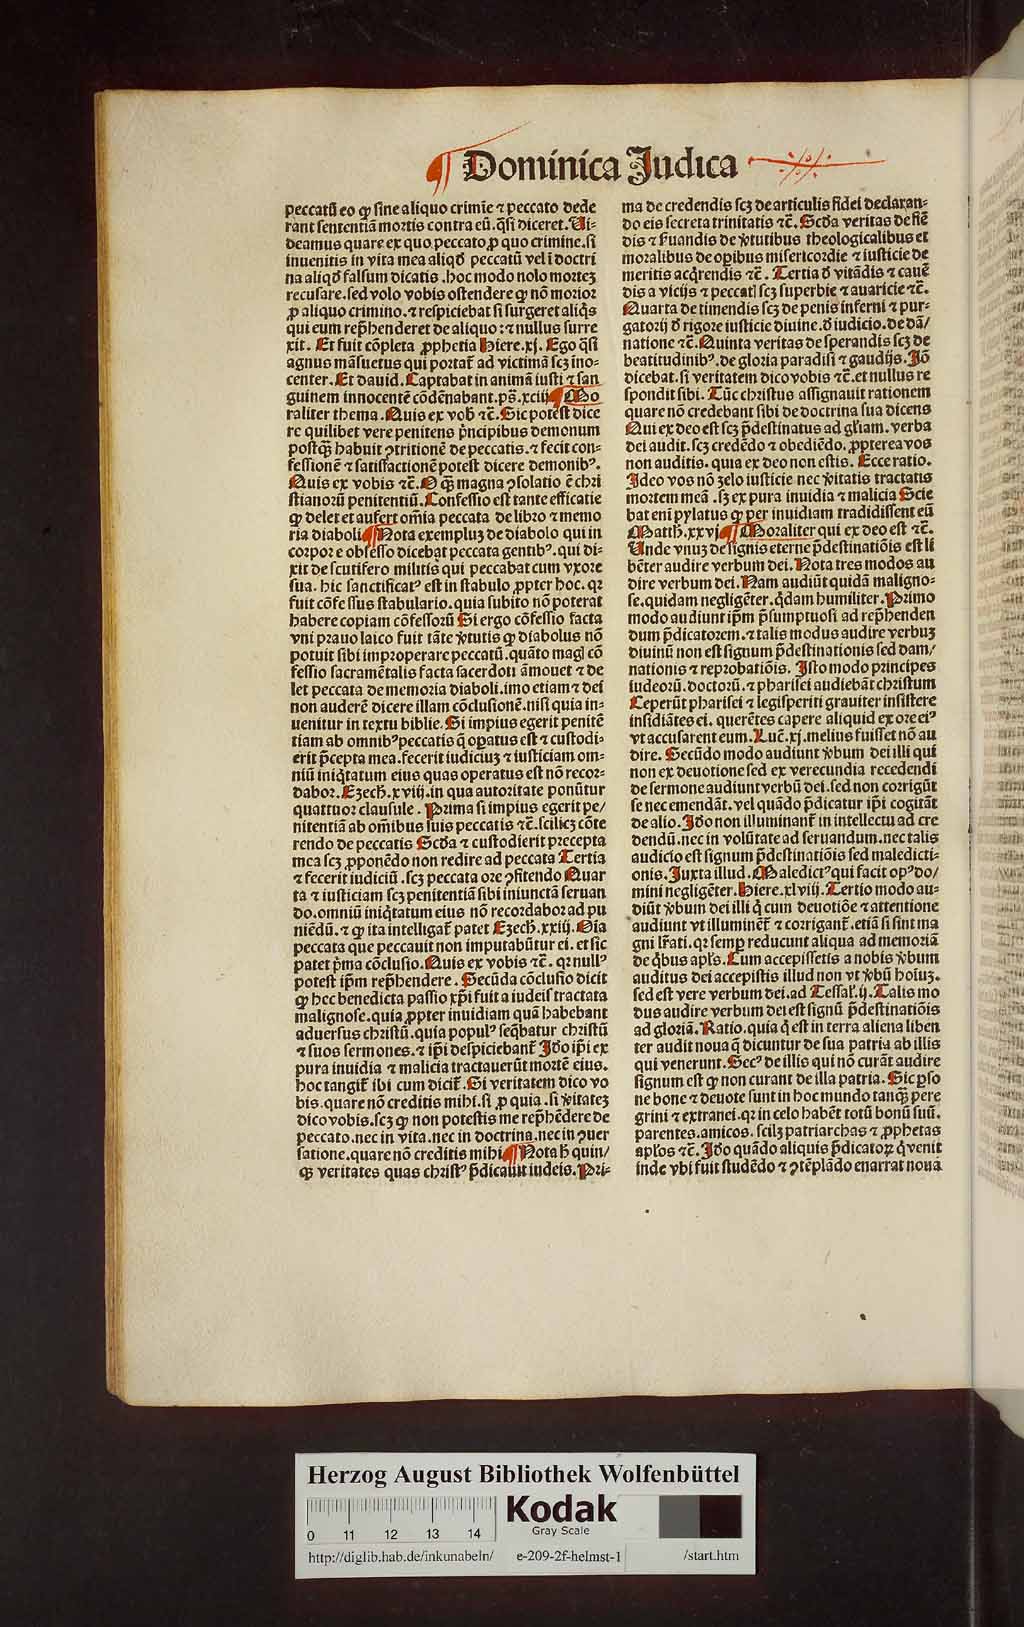 Dominica Judica
peccatū eo ꝙ sine aliquo crimīe ⁊ peccato dede
rant sententiā mortis contra eū. q̄si diceret. Ui⸗
deamus quare ex quo peccato ꝓ quo crimine. si
inuenitis in vita mea aliqd̄ peccatū vel ī doctri
na aliqd̄ falsum dicatis. hoc modo nolo mortez
recusare. sed volo vobis ostendere ꝙ nō morior
ꝓ aliquo crimino. ⁊ respiciebat si surgeret aliq̄s
qui eum rep̄henderet de aliquo: ⁊ nullus surre
xit. Et fuit cōpleta ꝓphetia Hiere. xj. Ego q̄si
agnus māsuetus qui portat̄ ad victimā scꝫ ino⸗
center. Et dauid. Captabat in animā iusti ⁊ san
guinem innocentē cōdēnabant. ps̄. xciij Mo
raliter thema. Quis ex vob̄ ⁊c̄. Sic potest dice
re quilibet vere penitens p̄ncipibus demonum
postq̄ꝫ habuit ꝯtritionē de peccatis. ⁊ fecit con⸗
fessionē ⁊ satisfactionē potest dicere demonibꝰ.
Quis ex vobis ⁊c̄. O q̄ꝫ magna ꝯsolatio ē chri
stianorū penitentiū. Confessio est tante efficatie
ꝙ delet et aufert om̄ia peccata de libro ⁊ memo
ria diaboli Nota exempluꝫ de diabolo qui in
corpore obsesso dicebat peccata gentibꝰ. qui di⸗
xit de scutifero militis qui peccabat cum vxore
sua. hic sanctificatꝰ est in stabulo ꝓpter hoc. qꝛ
fuit cōfessus stabulario. quia subito nō poterat
habere copiam cōfessorū Si ergo cōfessio facta
vni prauo laico fuit tāte v̓tutis ꝙ diabolus nō
potuit sibi improperare peccatū. quāto magꝭ cō
fessio sacramētalis facta sacerdoti āmouet ⁊ de
let peccata de memoria diaboli. imo etiam ⁊ dei
non auderē dicere illam cōclusionē. nisi quia in⸗
uenitur in textu biblie. Si impius egerit penitē
tiam ab omnibꝰ peccatis q̄ oꝑatus est ⁊ custodi⸗
erit p̄cepta mea. fecerit iudiciuꝫ ⁊ iusticiam om⸗
niū iniq̄tatum eius quas operatus est nō recor⸗
dabor. Ezech. xviij. in qua autoritate ponūtur
quattuor clausule. Prima si impius egerit pe/
nitentiā ab om̄ibus suis peccatis ⁊c̄. scilicꝫ cōte
rendo de peccatis Scd̄a ⁊ custodierit precepta
mea scꝫ ꝓponēdo non redire ad peccata Tertia
⁊ fecerit iudiciū. scꝫ peccata ore ꝯfitendo Quar
ta ⁊ iusticiam scꝫ penitentiā sibi iniunctā seruan
do. omniū iniq̄tatum eius nō recordabor ad pu
niēdū. ⁊ ꝙ ita intelligat̄ patet Ezech. xxiij. Oīa
peccata que peccauit non imputabūtur ei. et sic
patet p̄ma cōclusio. Quis ex vobis ⁊c̄. qꝛ nullꝰ
potest ip̄m rep̄hendere. Secūda cōclusio dicit
ꝙ hec benedicta passio xp̄i fuit a iudeis tractata
malignose. quia ꝓpter inuidiam quā habebant
aduersus christū. quia populꝰ seq̄batur christū
⁊ suos sermones. ⁊ ip̄i despiciebant̄ Jdo ip̄i ex
pura inuidia ⁊ malicia tractauerūt mortē eius.
hoc tangit̄ ibi cum dicit̄. Si veritatem dico vo
bis. quare nō creditis mihi. si ꝓ quia. si v̓itateꝫ
dico vobis. scꝫ ꝙ non potestis me rep̄hēdere de
peccato. nec in vita. nec in doctrina. nec in ꝯuer
satione. quare nō creditis mihi Nota ħ quin/
qꝫ veritates quas christꝰ p̄dicauit iudeis. Pri⸗
ma de credendis scꝫ de articulis fidei declaran⸗
do eis secreta trinitatis ⁊c̄. Scd̄a veritas de fiē
dis ⁊ ẜuandis de v̓tutibus theologicalibus et
moralibus de oꝑibus misericordie ⁊ iusticie de
meritis acq̄rendis ⁊c̄. Tertia d̓ vitādis ⁊ cauē
dis a vicijs ⁊ peccatꝭ scꝫ superbie ⁊ auaricie ⁊c̄.
Quarta de timendis scꝫ de penis inferni ⁊ pur⸗
gatorij d̓ rigore iusticie diuine. d̓ iudicio. de dā/
natione ⁊c̄. Quinta veritas de sperandis scꝫ de
beatitudinibꝰ. de gloria paradisi ⁊ gaudijs. Jō
dicebat. si veritatem dico vobis ⁊c̄. et nullus re
spondit sibi. Tūc christus assignauit rationem
quare nō credebant sibi de doctrina sua dicens
Qui ex deo est scꝫ p̄destinatus ad gl̄iam. verba
dei audit. scꝫ credēdo ⁊ obediēdo. ꝓpterea vos
non auditis. quia ex deo non estis. Ecce ratio.
Jdeo vos nō ꝫelo iusticie nec v̓itatis tractatis
mortem meā. sꝫ ex pura inuidia ⁊ malicia Scie
bat enī pylatus ꝙ per inuidiam tradidissent eū
Matth. xxvij Moraliter qui ex deo est ⁊c̄.
Unde vnuꝫ de signis eterne p̄destinatiōis est li
bēter audire verbum dei. Nota tres modos au
dire verbum dei. Nam audiūt quidā maligno⸗
se. quidam negligēter. q̄dam humiliter. Primo
modo audiunt ip̄m p̄sumptuosi ad rep̄henden
dum p̄dicatorem. ⁊ talis modus audire verbuꝫ
diuinū non est signum p̄destinationis sed dam/
nationis ⁊ reprobatiōis. Jsto modo principes
iudeorū. doctorū. ⁊ pharisei audiebāt christum
Ceperūt pharisei ⁊ legisperiti grauiter insistere
insidiātes ei. querētes capere aliquid ex ore eiꝰ
vt accusarent eum. Luē. xj. melius fuisset nō au
dire. Secūdo modo audiunt v̓bum dei illi qui
non ex deuotione sed ex verecundia recedendi
de sermone audiunt verbū dei. sed non corrigūt
se nec emendāt. vel quādo p̄dicatur ip̄i cogitāt
de alio. Jdo non illuminant̄ in intellectu ad cre
dendū. nec in volūtate ad seruandum. nec talis
audicio est signum p̄destinatiōis sed maledicti⸗
onis. Juxta illud. Maledictꝰ qui facit opꝰ do/
mini negligēter. Hiere. xlviij. Tertio modo au⸗
diūt v̓bum dei illi q̄ cum deuotiōe ⁊ attentione
audiunt vt illuminēt̄ ⁊ corrigant̄. etiā si sint ma
gni lr̄ati. qꝛ semꝑ reducunt aliqua ad memoriā
de q̄bus apl̄s. Cum accepissetis a nobis v̓bum
auditus dei accepistis illud non vt v̓bū hoīuꝫ.
sed est vere verbum dei. ad Tessal̄. ij. Talis mo
dus audire verbum dei est signū p̄destinatiōis
ad gloriā. Ratio. quia q̄ est in terra aliena liben
ter audit noua q̄ dicuntur de sua patria ab illis
qui venerunt. Secꝰ de illis qui nō curāt audire
signum est ꝙ non curant de illa patria. Sic ꝑso
ne bone ⁊ deuote sunt in hoc mundo tanq̄ꝫ pere
grini ⁊ extranei. qꝛ in celo habēt totū bonū suū.
parentes. amicos. scilꝫ patriarchas ⁊ ꝓphetas
apl̄os ⁊c̄. Jdo quādo aliquis p̄dicatoꝝ q̄ venit
inde vbi fuit studēdo ⁊ ꝯtēplādo enarrat noua
Herzog August Bibliothek Wolfenbüttel
0 11 12 13 14
Kodak
Gray Scale
http://diglib.hab.de/inkunabeln/ e-209-2f-helmst-1 /start.htm